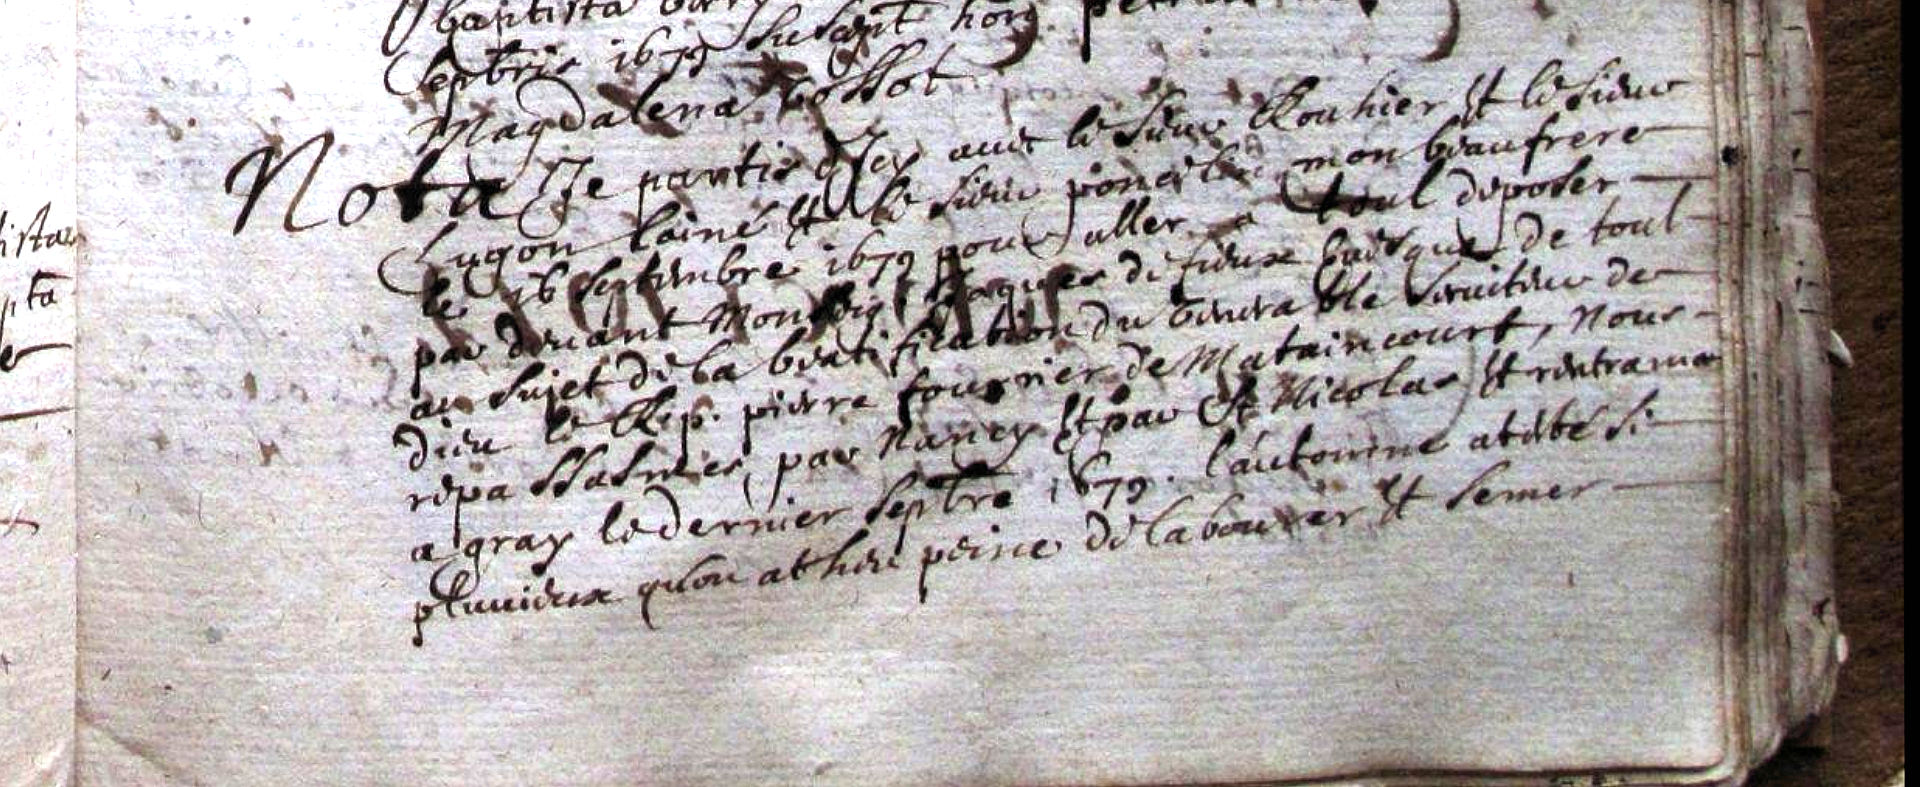 baptista
Septbris 1679 Suscept hon. petrus
Magdalena bossot
Nota Je partis d'Icy avec le sieur Rouhier Et le sieur
Lugon lainé Et le sieur poncelin mon beaufrere
le 16 Septembre 1679 pour aller a toul deposer
par devant Monseigr Jaques de fieux Evesque de toul
au sujet de la beatification du venerable serviteur de
dieu le R. p. pierre fourrier de Mataincourt, Nous
repassasmes par Nancy Et par St Nicolas Et rentrames
a gray le dernier septbre 1679. l'automne at esté si
pluvieux qu'on at heu peine de labourer Et semer